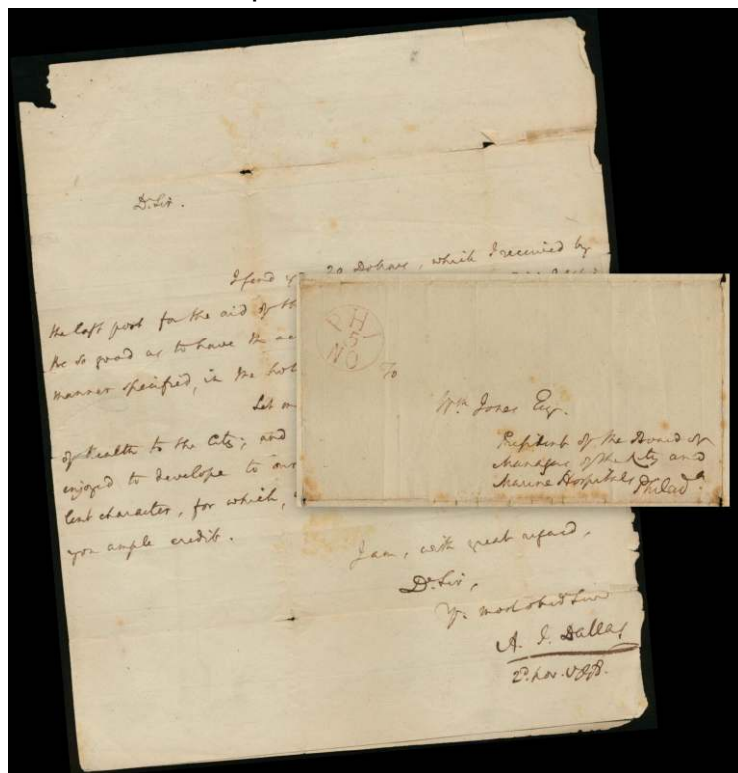 Dr. Sir.
I send you 20 Dollars, which I received by
the last post for the aid of the
be so good as to have the
manner specified, in the
Let
of health to the City; and
enjoyed to develope to our
lent character, for which,
you ample credit.
I am, with great regard,
Dr. Sir,
Yr. most obed Serv
A. J. Dallas
2d. Nov. 1798.
PH
5
NO
To
Wm. Jones Esq.
President of the Board of
Managers of the City and
Marine Hospitals
Philada.